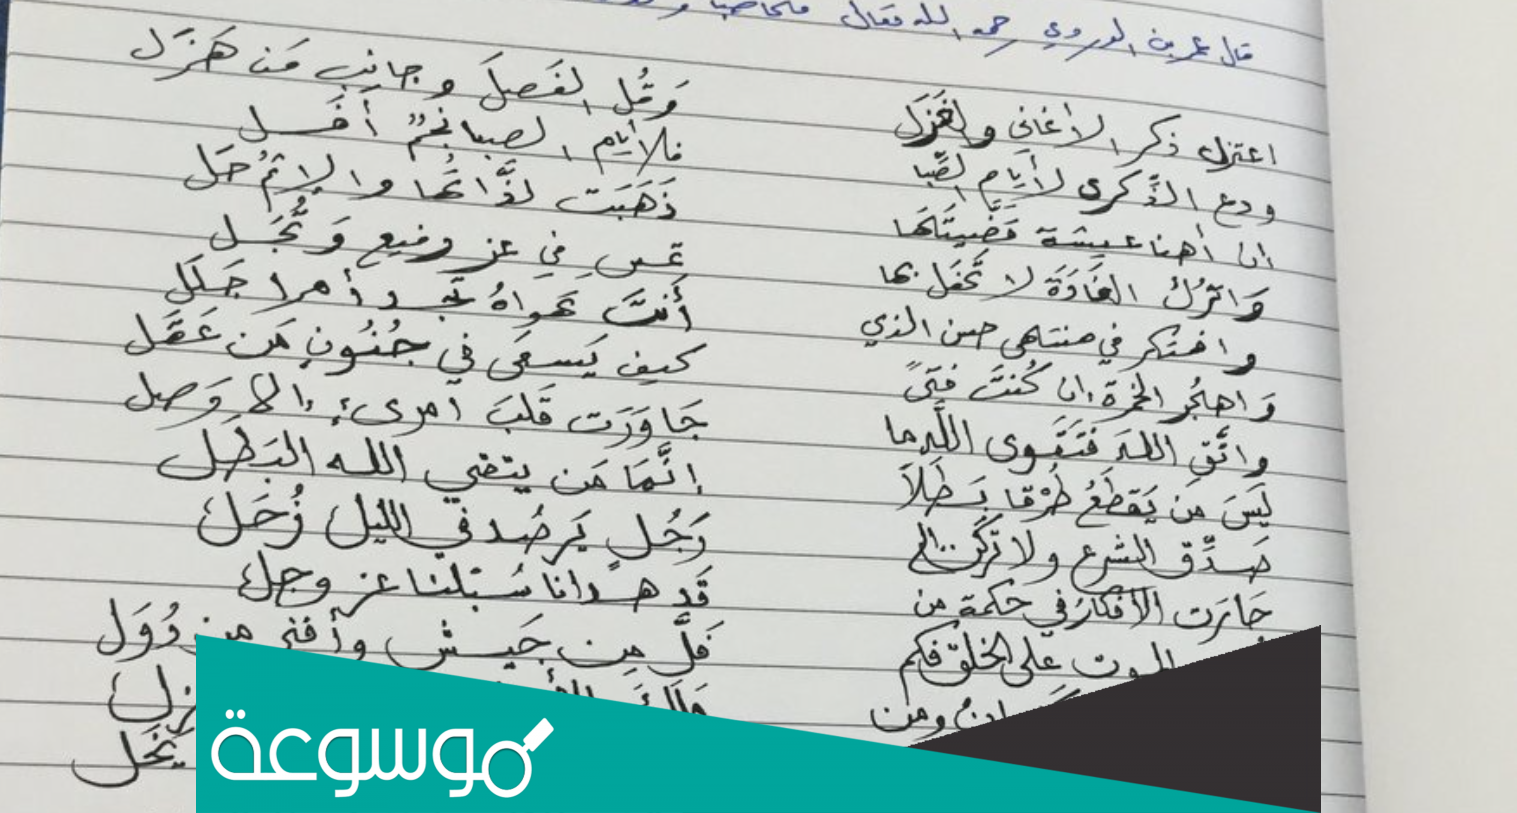 قال عمر بن الوردي رحمه الله فقال مخاطبا
اعتزل ذكر الأغاني والغزل وَقُل الفَصلَ وجانِب مَن هَزَل
ودع الذِّكرى لأيام الصِّبا فلأيام الصبا نجمٌ أفَل
إن أهنا عيشة قَضَّيتَها ذَهَبَت لذَّاتُها والإثمُ حَل
وَاترُك الغادَةَ لا تحفَل بها تمسِ في عز رفيع وَتُجَل
وافتكر في منتهى حسن الذي أنتَ تهواهُ تجد أمرا جَلَل
وَاهجُر الخمرة إن كُنتَ فتىً كيف يَسعَى في جُنُونٍ مَن عَقَل
واتَّقِ اللهَ فَتَقوى اللَّه ما جَاوَرَت قَلبَ امرىءٍ إلا وَصل
لَيسَ مَن يَقطَعُ طُرْقا بَطَلاً إنَّمَا مَن يتقي الله البَطَل
صَدِّق الشرع ولا تركَن إلى رَجُلٍ يَرصُد في الليل زُحَل
حَارَت الأفكارُ في حكمة من قَد هدانا سُبْلنا عز وجل
الموت على الخلق فكم فَلَّ مِن جَيشٍ وأفنى من دُوَل
ومن
موسوعة